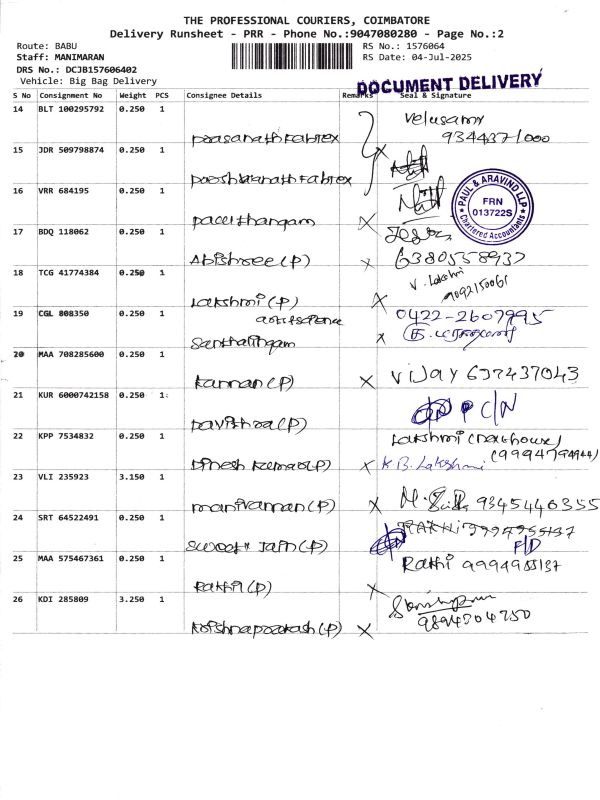 THE PROFESSIONAL COURIERS, COIMBATORE
Delivery Runsheet - PRR - Phone No.:9047080280 - Page No.:2
Route: BABU
Staff: MANIMARAN
DRS No.: DCJB157606402
Vehicle: Big Bag Delivery
RS No.: 1576064
RS Date: 04-Jul-2025
DOCUMENT DELIVERY
S No Consignment No Weight PCS Consignee Details Remarks Seal & Signature
14 BLT 100295792 0.250 1
Velusamy
15 JDR 509798874 0.250 1
16 VRR 684195 0.250 1
PAUL & ARAVIND LLP
FRN
013722S
Chartered Accountants
17 BDQ 118062 0.250 1
Abishree (P)
6380558937
18 TCG 41774384 0.250 1
V. Lakshmi
9092150061
Lakshmi (P)
19 CGL 808350 0.250 1
0422-2607995
Santhalingam
20 MAA 708285600 0.250 1
Kannan (P) X Vijay 637437043
21 KUR 6000742158 0.250 1
P C/N
Pavithra (P)
22 KPP 7534832 0.250 1
Dinesh Kumar (P) X K.B. Lakshmi
23 VLI 235923 3.150 1
Manivannan (P) X 9345440355
24 SRT 64522491 0.250 1
Sweety Jain (P) F/D
25 MAA 575467361 0.250 1
Rathi 9994955137
Rathi (P) X
26 KDI 285809 3.250 1
9894304750
Krishnaprakash (P) X